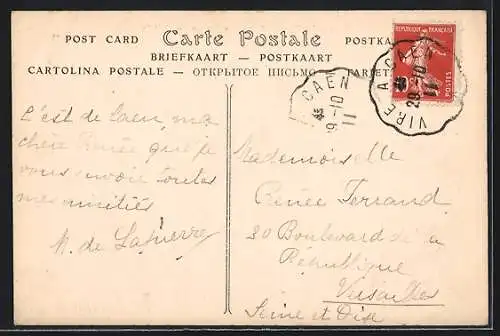 POST CARD Carte Postale POSTKA
BRIEFKAART — POSTKAART
CARTOLINA POSTALE — ОТКРЫТОЕ ПИСЬМО — TARJET
REPUBLIQUE FRANÇAISE
POSTES
VIRE A CAEN
29-10
11
CAEN
9-10
11
C'est de Caen, ma
chère Renée que je
vous envoie toutes
mes amitiés
M. de
Mademoiselle
Renée Ferrand
30 Boulevard de la
République
Versailles
Seine et Oise